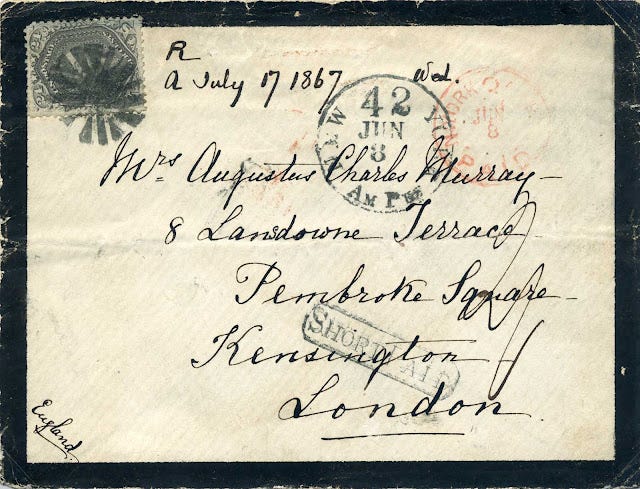 R
A July 17 1867 Wed.
NEW YORK
42
JUN
8
AM PKT
JUN
8
PAID
Mrs Augustus Charles Murray
8 Lansdowne Terrace
Pembroke Square
Kensington
SHORT PAID
London
England